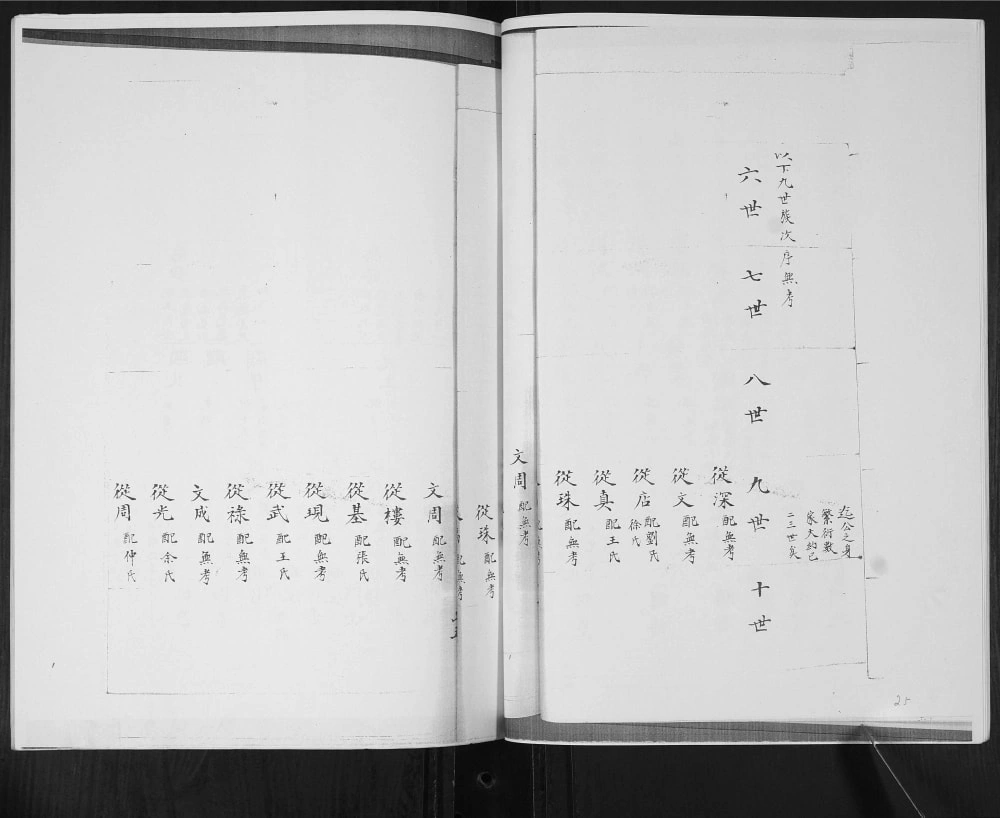 迄公之身
繁衍數
家大約已
二三世矣
以下九世簇次序無考
六世 七世 八世 九世 十世
從深 配無考
從文 配無考
從店 配劉氏 徐氏
從真 配王氏
從珠 配無考
文周 配無考
從珠 配無考
配無考
二五
文周 配無考
從樓 配無考
從基 配張氏
從現 配無考
從武 配王氏
從祿 配無考
文成 配無考
從光 配余氏
從周 配仲氏
25